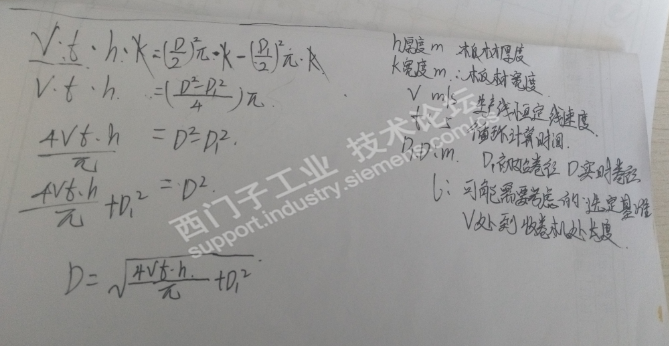 V·t·h·k=(D/2)²π·k-(D₁/2)²π·k
V·t·h =(D²-D₁²/4)π
4Vt·h/π =D²-D₁².
4Vt·h/π+D₁² =D².
D=√(4Vt·h/π+D₁²)
h厚度m 板材厚度
k宽度m.:板材宽度
V m/s 生产线恒定线速度.
t: s 循环计算时间.
D.D₁:m. D₁初始卷径 D实时卷径
l:可能需要考虑的:选定基准
V处到收卷机处长度
西门子工业 技术论坛
support.industry.siemens.com/cs